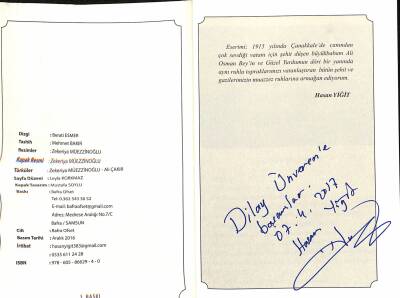 Dizgi : Berati ESMER
Tashih : Mehmet BAKIR
Resimler : Zekeriya MÜEZZİNOĞLU
Kapak Resmi : Zekeriya MÜEZZİNOĞLU
Türküler : Zekeriya MÜEZZİNOĞLU - Ali ÇAKIR
Sayfa Düzeni : Leyla KORKMAZ
Kapak Tasarımı : Mustafa SOYLU
Baskı : Bafra Ofset
Tel: 0.362 543 50 52
E-mail: bafraofset@gmail.com
Adres: Medrese Aralığı No:7/C
Bafra / SAMSUN
Cilt : Bafra Ofset
Basım Tarihi : Aralık 2016
İrtibat : hasanyigit383@gmail.com
: 0535 611 24 28
ISBN : 978 - 605 - 66629 - 4 - 0
2. BASKI
Eserimi; 1915 yılında Çanakkale'de canından
çok sevdiği vatanı için şehit düşen büyükbabam Ali
Osman Bey'in ve Güzel Yurdumun dört bir yanında
aynı ruhla topraklarımızı vatanlaştıran bütün şehit ve
gazilerimizin muazzez ruhlarına armağan ediyorum.
Hasan YİĞİT
Dilay Ünveren'e
başarılar.
07.4.2017
Hasan Yiğit